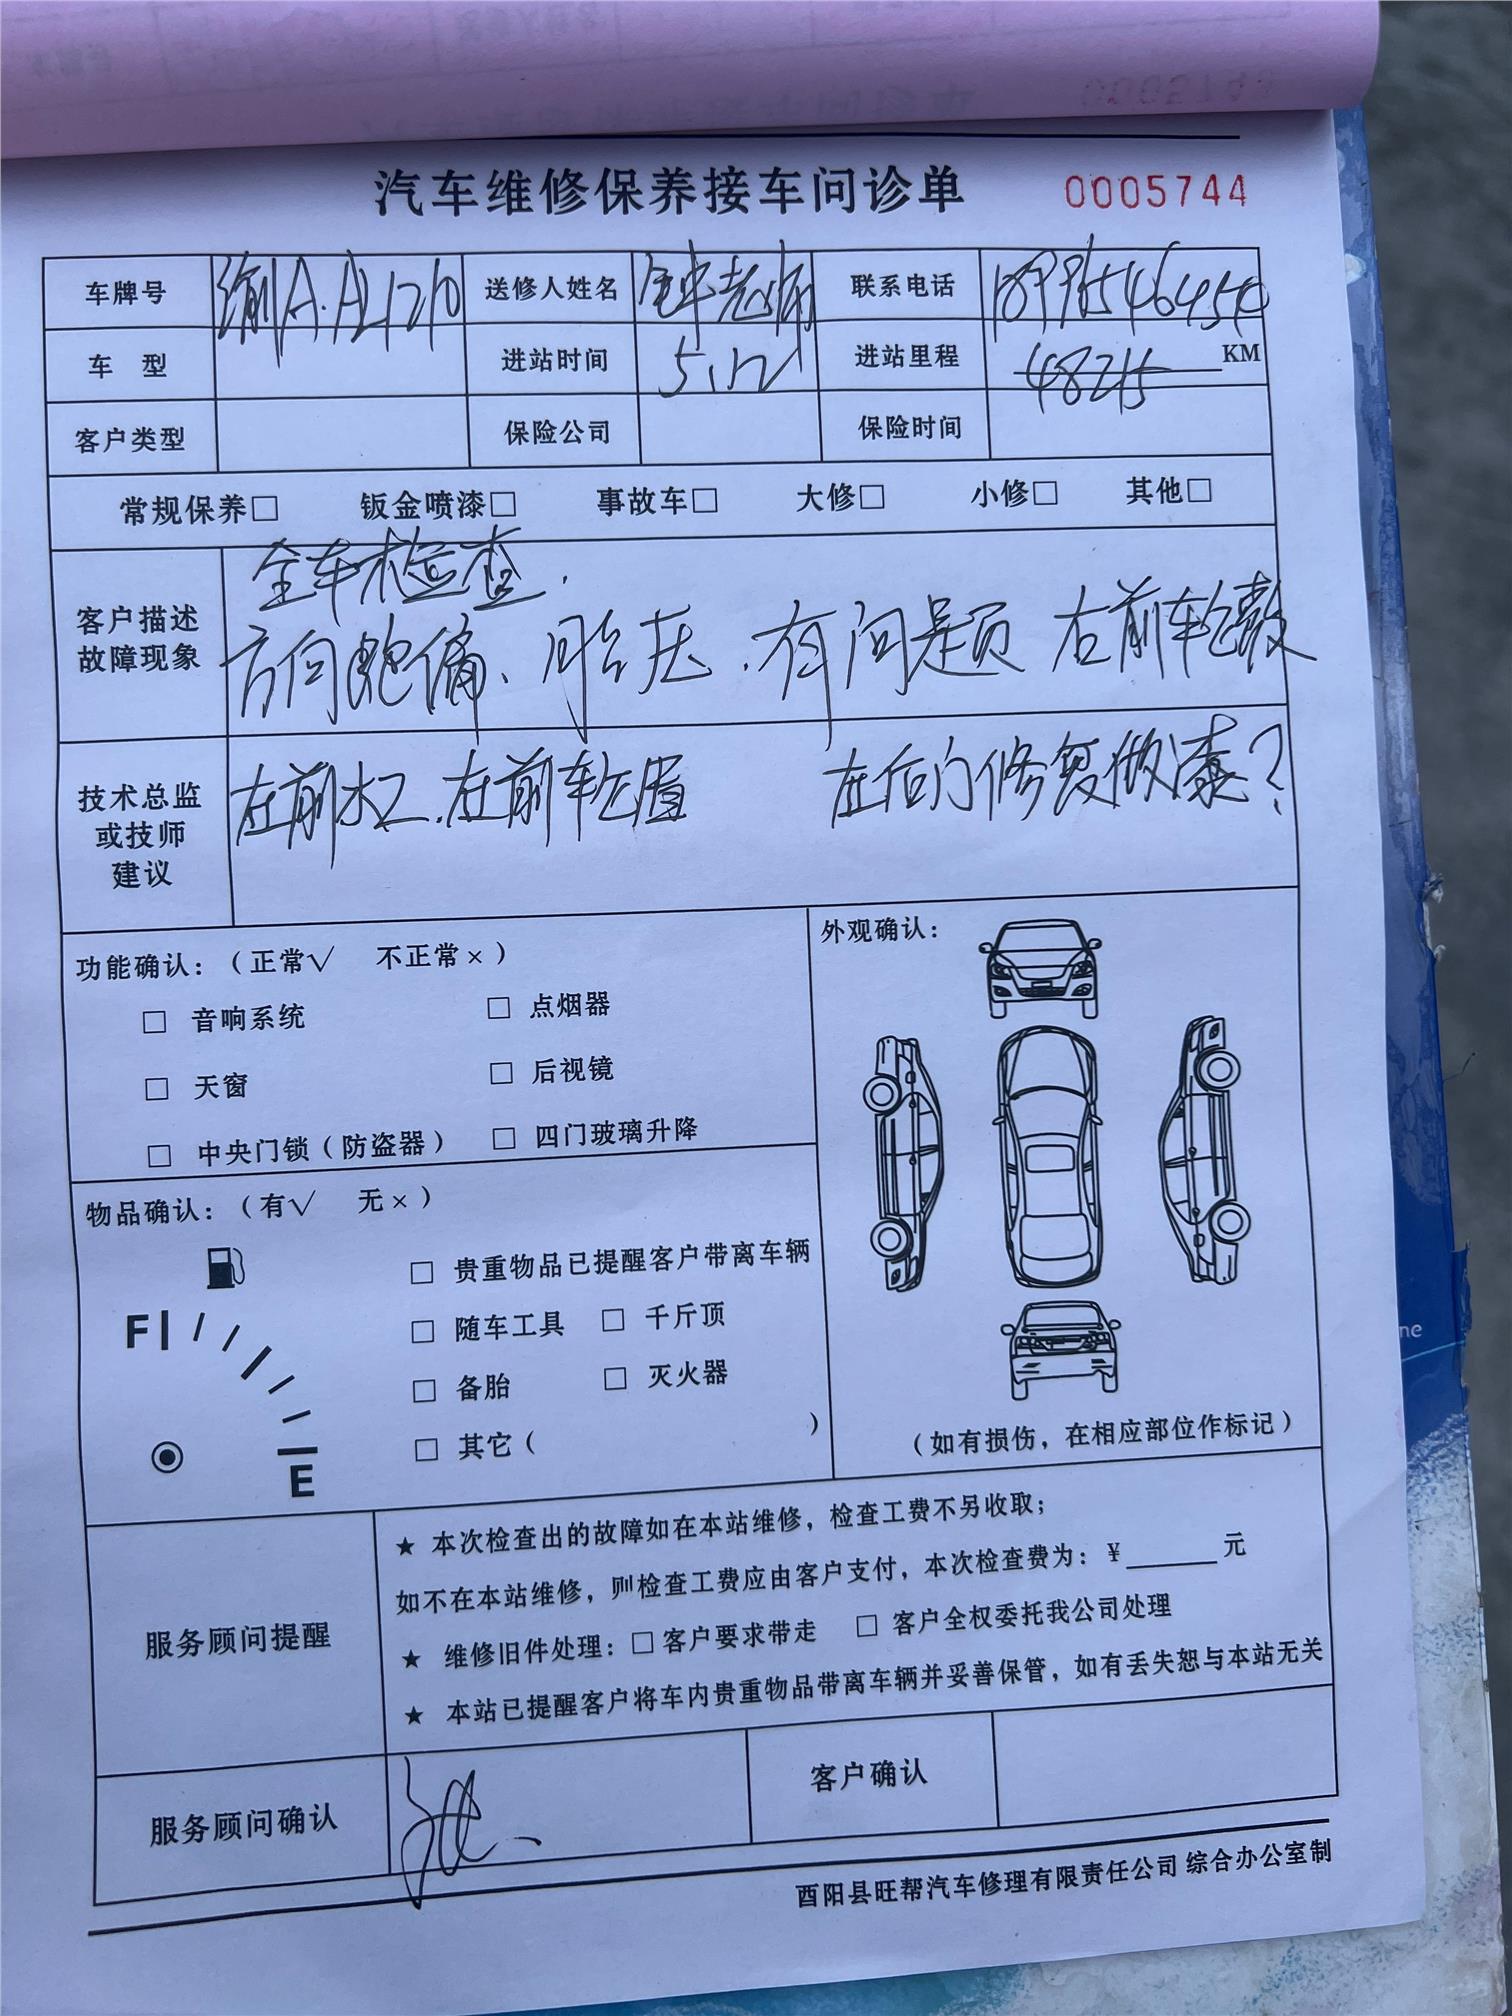 汽车维修保养接车问诊单 0005744
车牌号 渝A·AL1210 送修人姓名 钟老师 联系电话
车 型 进站时间 5.12 进站里程 48215 KM
客户类型 保险公司 保险时间
常规保养□ 钣金喷漆□ 事故车□ 大修□ 小修□ 其他□
客户描述
故障现象
全车检查.
方向跑偏、胎压.有问题 右前轮毂
技术总监
或技师
建议
左前 左前轮眉 左后门修复做漆?
功能确认:(正常√ 不正常×)
□ 音响系统 □ 点烟器
□ 天窗 □ 后视镜
□ 中央门锁(防盗器) □ 四门玻璃升降
外观确认:
(如有损伤,在相应部位作标记)
物品确认:(有√ 无×)
F
E
□ 贵重物品已提醒客户带离车辆
□ 随车工具 □ 千斤顶
□ 备胎 □ 灭火器
□ 其它( )
服务顾问提醒
★ 本次检查出的故障如在本站维修,检查工费不另收取;
如不在本站维修,则检查工费应由客户支付,本次检查费为:¥______元
★ 维修旧件处理:□客户要求带走 □ 客户全权委托我公司处理
★ 本站已提醒客户将车内贵重物品带离车辆并妥善保管,如有丢失恕与本站无关
服务顾问确认 客户确认
酉阳县旺帮汽车修理有限责任公司 综合办公室制